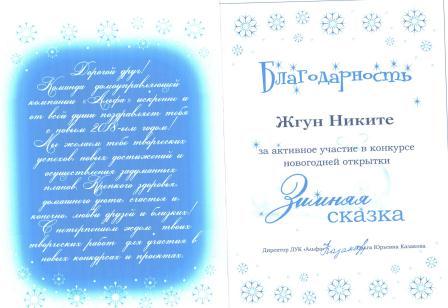 Дорогой друг!
Команда домоуправляющей
компании «Альфа» искренно и
от всей души поздравляет тебя
с новым 2018-ым годом!
Мы желаем тебе творческих
успехов, новых достижений и
осуществления задуманных
планов. Крепкого здоровья,
домашнего уюта, счастья и,
конечно, любви друзей и близких!
С нетерпением ждем твоих
творческих работ для участия в
новых конкурсах и проектах.
Благодарность
Жгун Никите
за активное участие в конкурсе
новогодней открытки
Зимняя
сказка
Директор ДУК «Альфа» Юрьевна Казакова